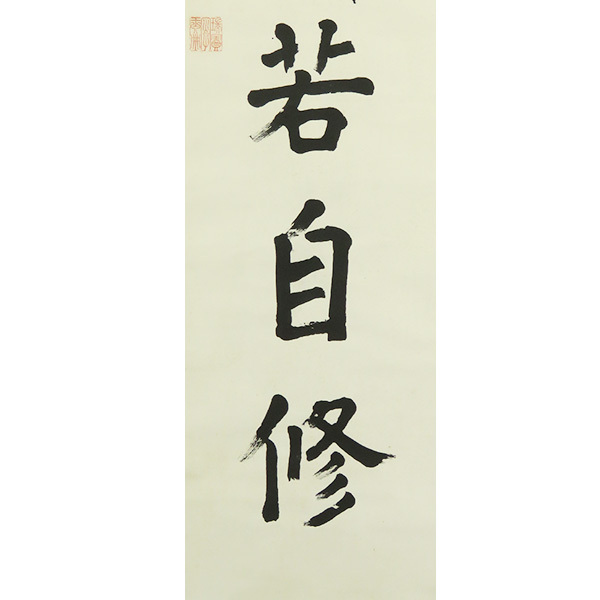 若自修